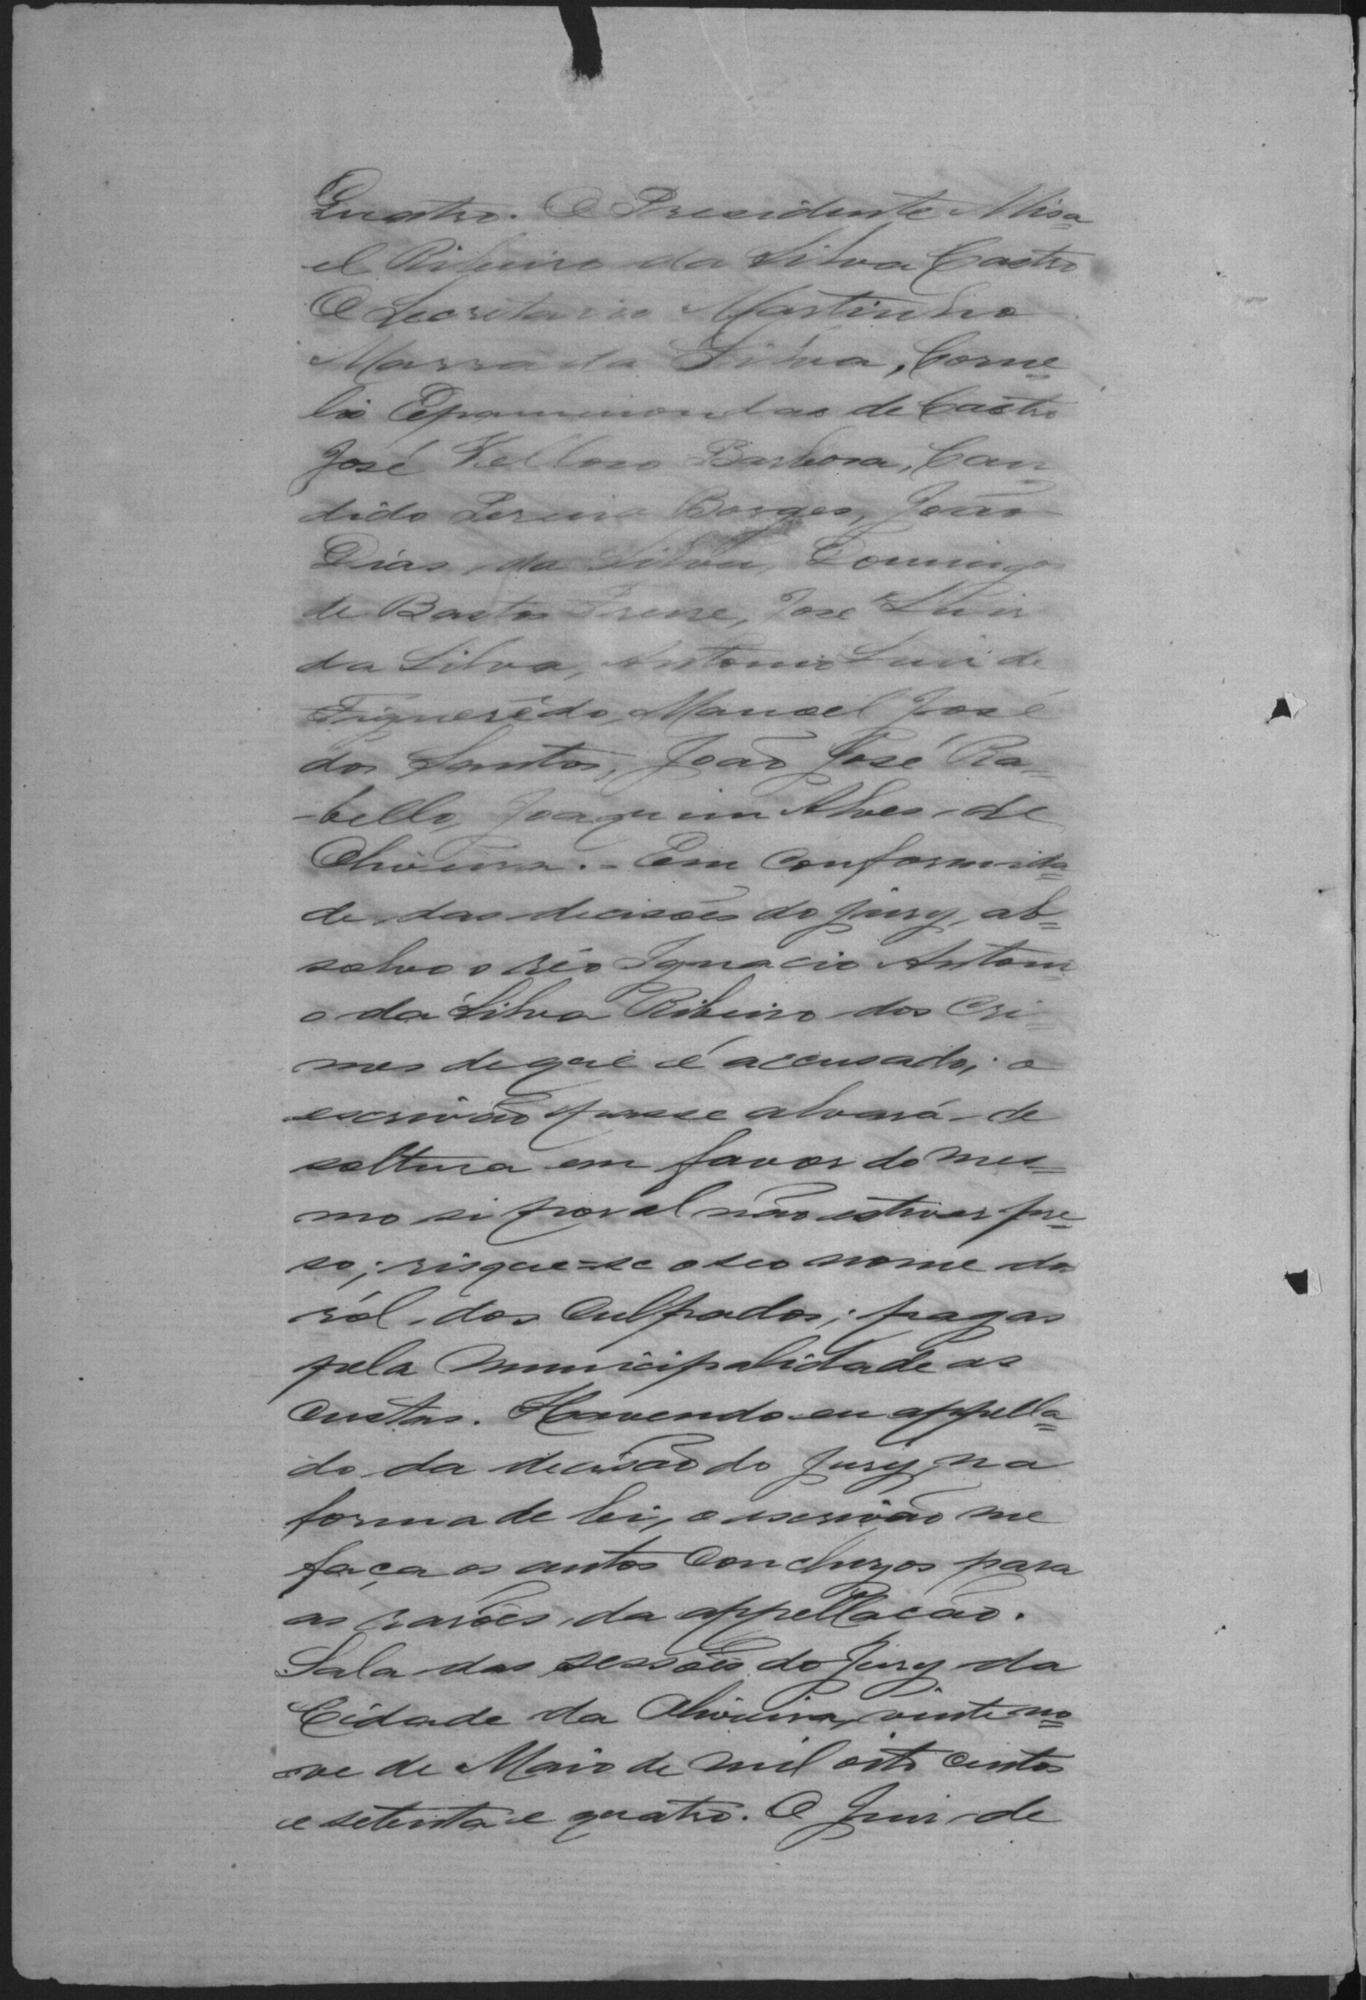 Quatro. O Presidente Misa=
el Ribeiro da Silva Castro
O Secretario Martinho
Marra da Silva, Corne=
lio Epaminondas de Castro
José Velloso Barbosa, Can=
dido Pereira Borges, João
Dias da Silva, Domingos
de Bastos Freire, José Luiz
da Silva, Antonio Luiz de
Figuerêdo, Manoel José
dos Santos, João José Ra=
bello, Joaquim Alves de
Oliveira. - Em conformida=
de das decisões do Jury, ab=
solvo o réo Ignacio Antoni
o da Silva Ribeiro dos cri=
mes de que é accusado; o
escrivão passe alvará de
soltura em favor do mes=
mo si por al não estiver pre=
so; risque=se o seo nome do
ról dos culpados; pagas
pela municipalidade as
custas. Havendo eu appella=
do da decisão do Jury, na
forma de lei, o escrivão me
faça os autos conclusos para
as rasões da appellacão.
Sala das sessões do Jury da
Cidade da Oliveira, vinte no=
ve de Maio de mil oito centos
e setenta e quatro. O Juiz de